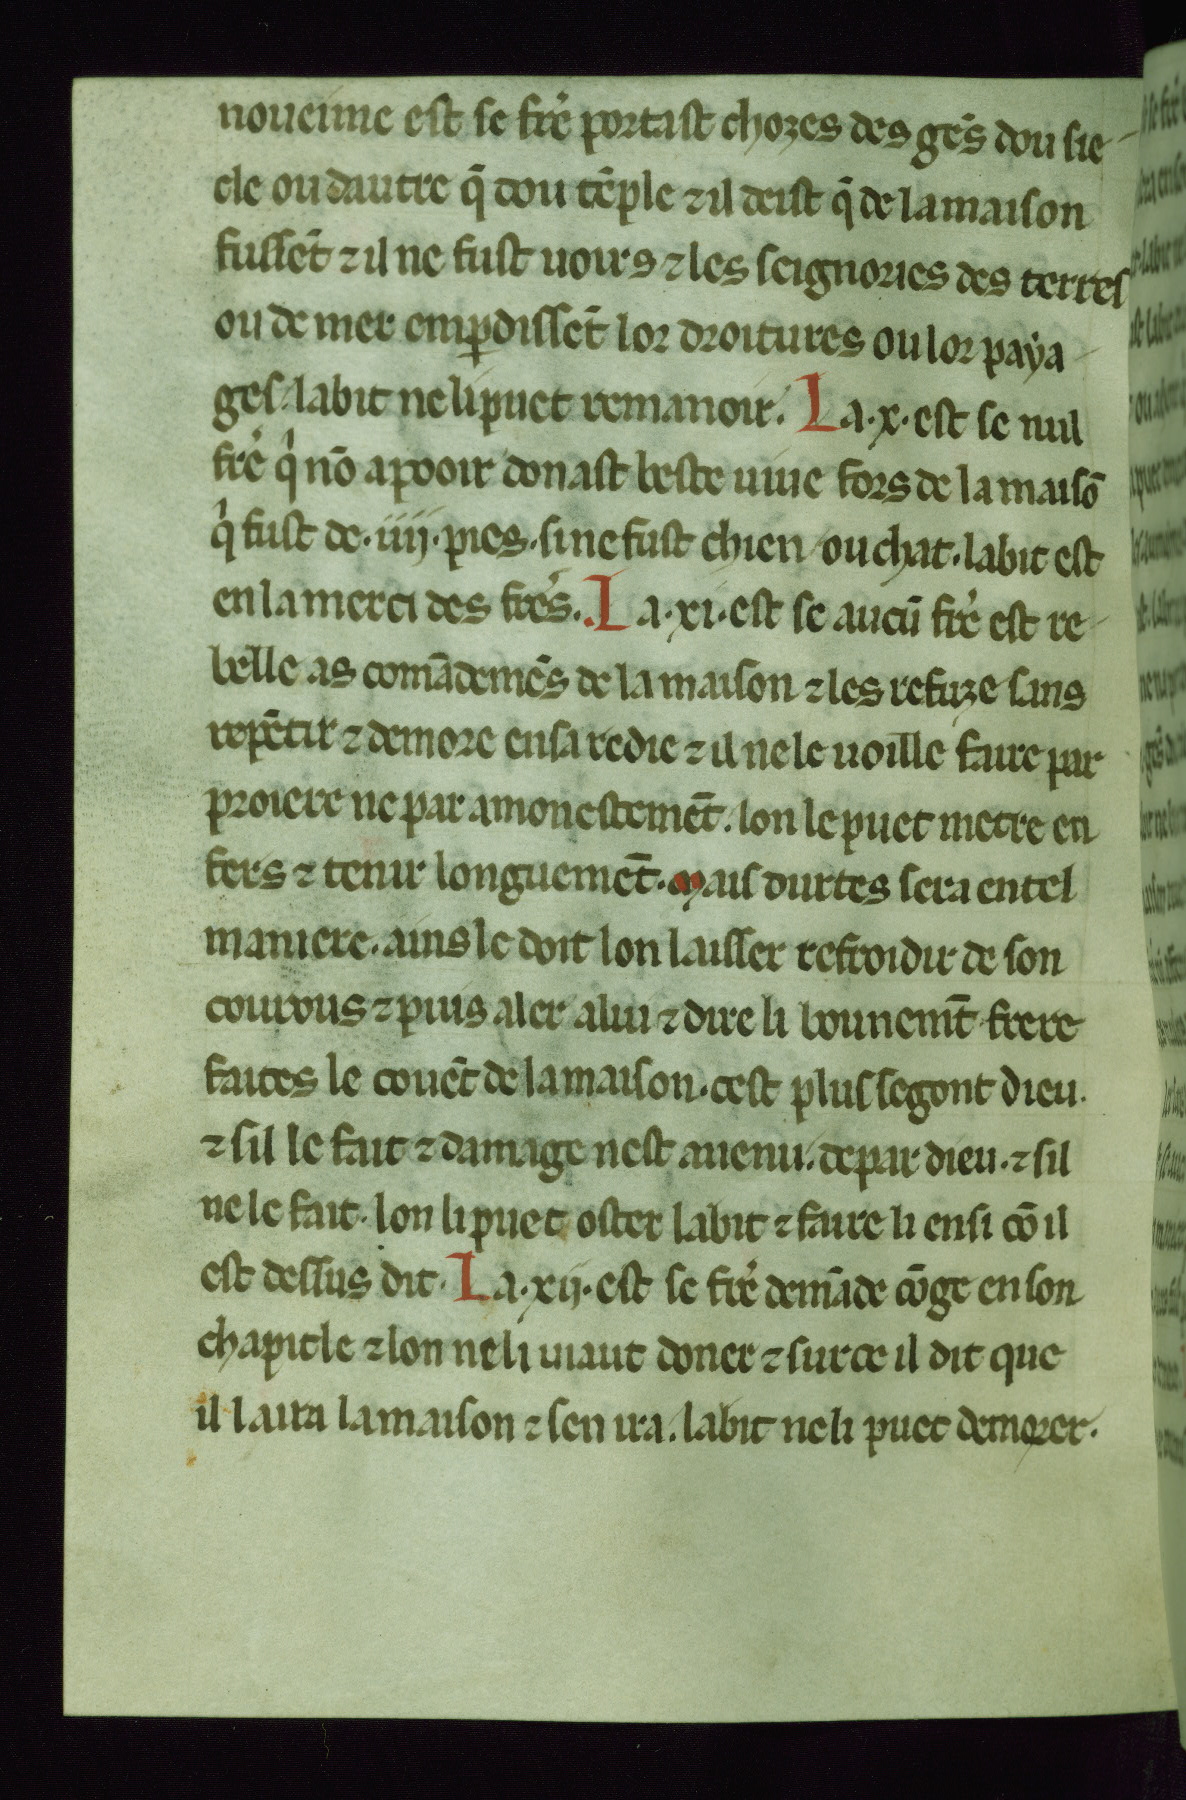 noueime est se fr̃e portast chozes des gẽs dou sie-
cle ou dautre q̃ dou tẽple ⁊ il deist q̃ de la maison
fussẽt ⁊ il ne fust uoirs ⁊ les seignories des terres
ou de mer en ꝑdissẽt lor droitures ou lor paya-
ges. labit ne li puet remanoir. La .x. est se nul
fr̃e qͥ nõ a pooir donast beste uiue fors de la maisõ
qͥ fust de .iiij. pies. si ne fust chien ou chat. labit est
en la merci des fr̃es. La .xi. est se aucũ fr̃e est re-
belle as comãdemẽs de la maison ⁊ les refuze sans
repẽtir ⁊ demore en sa redie ⁊ il ne le uoille faire par
proiere ne par amonestemẽt. lon le puet metre en
fers ⁊ tenir longuemẽt. Mais durtes sera en tel
maniere. ains le doit lon laisser refroidir de son
courous ⁊ puis aler a lui ⁊ dire li bounemẽt frere
faites le couẽt de la maison. cest plus segont dieu.
⁊ sil le fait ⁊ damage nest auenu. de par dieu. ⁊ sil
ne le fait. lon li puet oster labit ⁊ faire li ensi cõ il
est dessus dit. La .xij. est se fr̃e demãde cõge en son
chapitle ⁊ lon ne li uiaut doner ⁊ sur ce il dit que
il laira la maison ⁊ sen ira. labit ne li puet demorer.